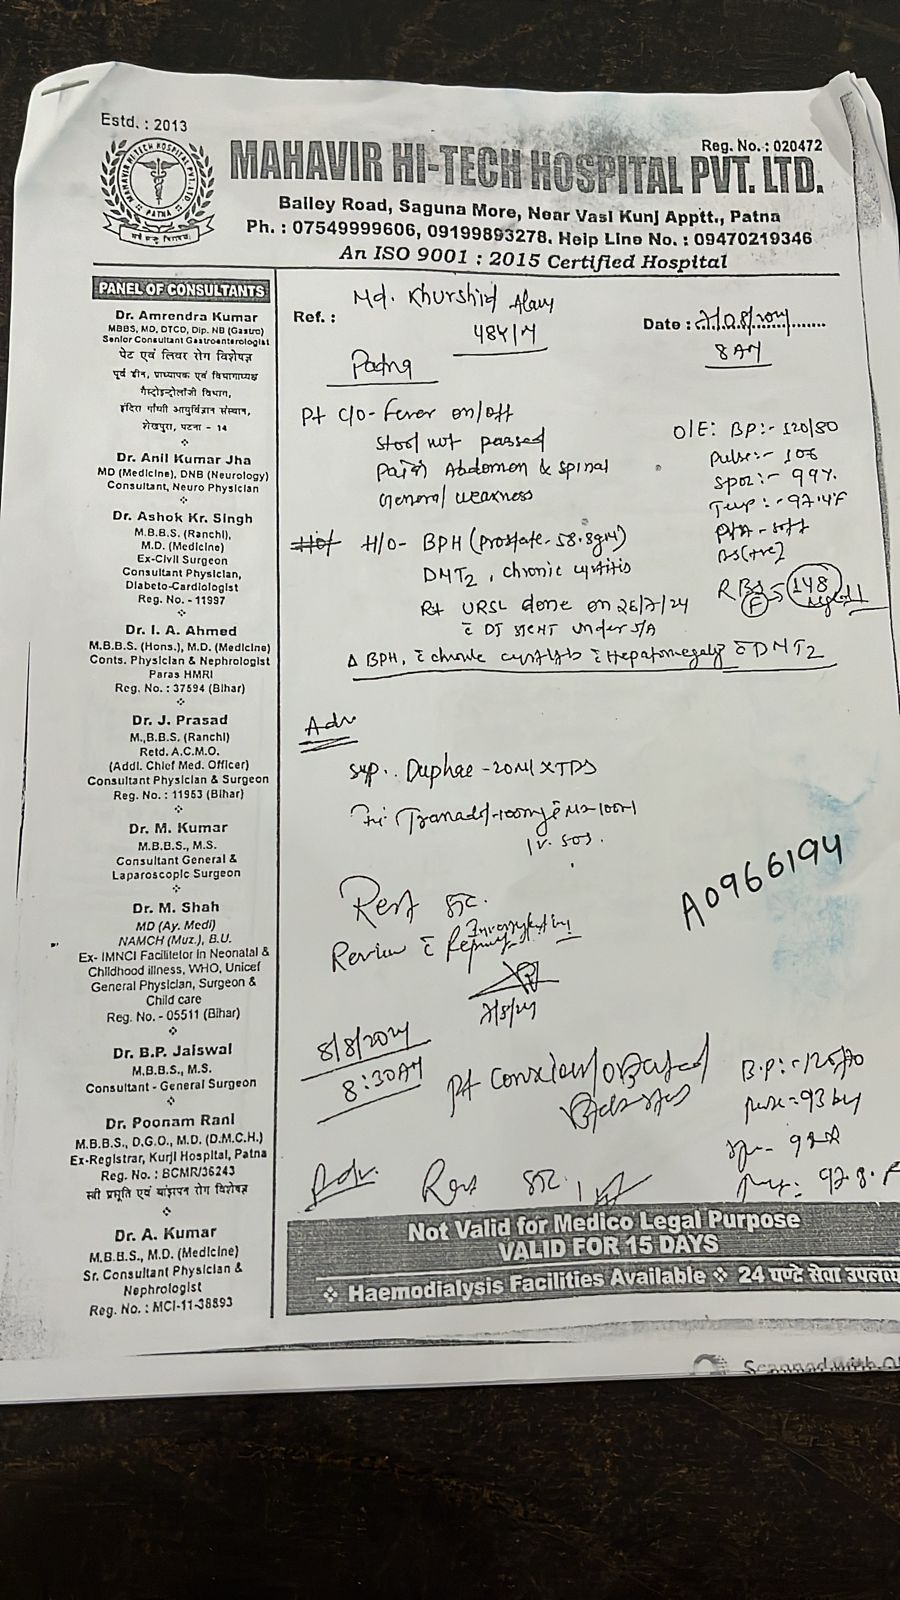 Estd. : 2013
Reg. No. : 020472
MAHAVIR HI-TECH HOSPITAL PVT. LTD.
MAHAVIR HI-TECH HOSPITAL PVT. LTD.
PATNA
Bailey Road, Saguna More, Near Vasi Kunj Apptt., Patna
Ph. : 07549999606, 09199893278. Help Line No. : 09470219346
An ISO 9001 : 2015 Certified Hospital
PANEL OF CONSULTANTS
Dr. Amrendra Kumar
MBBS, MD, DTCD, Dip. NB (Gastro)
Senior Consultant Gastroenterologist
पेट एवं लिवर रोग विशेषज्ञ
पूर्व डीन, प्राध्यापक एवं विभागाध्यक्ष
गैस्ट्रोइन्ट्रोलॉजी विभाग,
इंदिरा गाँधी आयुर्विज्ञान संस्थान,
शेखपुरा, पटना - 14
Dr. Anil Kumar Jha
MD (Medicine), DNB (Neurology)
Consultant, Neuro Physician
Dr. Ashok Kr. Singh
M.B.B.S. (Ranchi),
M.D. (Medicine)
Ex-Civil Surgeon
Consultant Physician,
Diabeto-Cardiologist
Reg. No. - 11997
Dr. I. A. Ahmed
M.B.B.S. (Hons.), M.D. (Medicine)
Conts. Physician & Nephrologist
Paras HMRI
Reg. No. : 37594 (Bihar)
Dr. J. Prasad
M.,B.B.S. (Ranchi)
Retd. A.C.M.O.
(Addl. Chief Med. Officer)
Consultant Physician & Surgeon
Reg. No. : 11953 (Bihar)
Dr. M. Kumar
M.B.B.S., M.S.
Consultant General &
Laparoscopic Surgeon
Dr. M. Shah
MD (Ay. Medi)
NAMCH (Muz.), B.U.
Ex- IMNCI Facilitetor in Neonatal &
Childhood illness, WHO, Unicef
General Physician, Surgeon &
Child care
Reg. No. - 05511 (Bihar)
Dr. B.P. Jaiswal
M.B.B.S., M.S.
Consultant - General Surgeon
Dr. Poonam Rani
M.B.B.S., D.G.O., M.D. (D.M.C.H.)
Ex-Registrar, Kurji Hospital, Patna
Reg. No. : BCMR/36243
स्त्री प्रसूति एवं बांझपन रोग विशेषज्ञ
Dr. A. Kumar
M.B.B.S., M.D. (Medicine)
Sr. Consultant Physician &
Nephrologist
Reg. No. : MCI-11-38893
Ref. : Md. Khurshid Alam
48Y/M
Patna
Date :
8 AM
Pt C/O- Fever on/off
Stool not passed
Pain Abdomen & spinal
General weakness
O/E: BP:- 120/80
Pulse:- 106
Spo2:- 99%
Temp:- 97.4F
P/A - soft
BS(+ve)
RBS
(F)
148
H/O- BPH (Prostate- 58.8gm)
DMT2, chronic cystitis
Rt URSL done on 26/7/24
c̄ DJ stent under S/A
Δ BPH, c̄ chronic cystitis c̄ Hepatomegaly c̄ DMT2
Adv
syp.. Duphae -20Ml X TDS
100ml
I.V. SOS.
Rest
Review c̄ Report
A0966194
8/8/2024
8:30AM
Pt
B.P:-
Adv. Rest
Not Valid for Medico Legal Purpose
VALID FOR 15 DAYS
❖ Haemodialysis Facilities Available ❖ 24 घण्टे सेवा
Scanned with